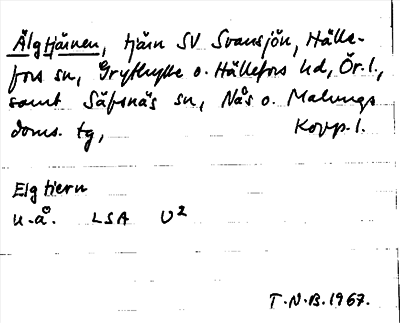 Älgtjärnen, tjärn SV Svansjön, Hälle-
fors sn, Grythytte o. Hällefors hd, Ör. l.,
samt Säfsnäs sn, Nås o. Malungs
doms. tg, Kopp. l.
Elgtiern
u.å. LSA U2
T.N.B. 1967.